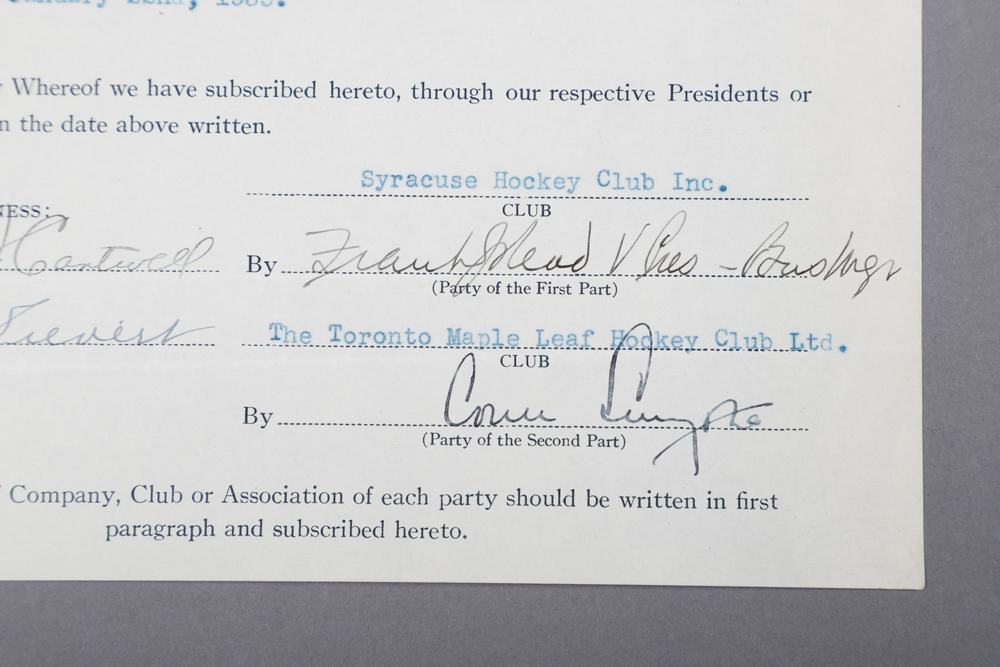 January 22nd, 1935.
Whereof we have subscribed hereto, through our respective Presidents or
the date above written.
Syracuse Hockey Club Inc.
NESS: CLUB
Cantwell By Frank J Mead V Pres - Bus Mgr
(Party of the First Part)
The Toronto Maple Leaf Hockey Club Ltd.
CLUB
By Conn Smythe
(Party of the Second Part)
Company, Club or Association of each party should be written in first
paragraph and subscribed hereto.